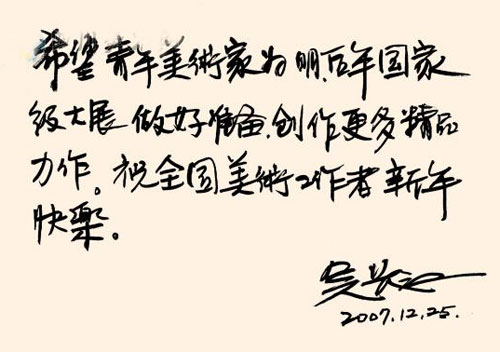 希望青年美術家为明后年国家
级大展做好准备,创作更多精品
力作。祝全国美術工作者新年
快樂。
吴长江
2007.12.25.